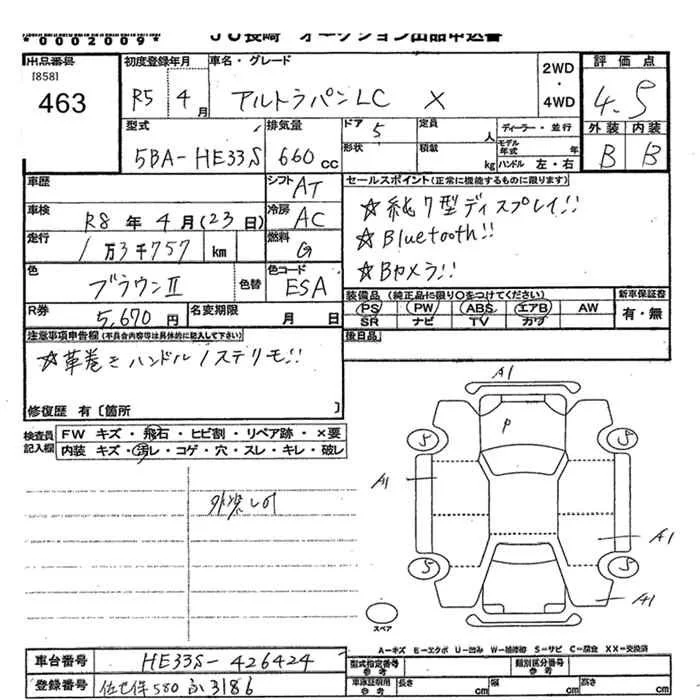 *0002009*
JU長崎 オークション出品申込書
出品番号 初度登録年月 車名・グレード 評価点
[858]
463 R5 4月 アルトラパンLC X 2WD・4WD 4.5
型式 排気量 ドア 5 定員 人 ディーラー・並行 外装 内装
5BA-HE33S 660cc 形状 積載 kg モデル年式 年 ハンドル 左・右 B B
車歴 シフト AT セールスポイント(正常に機能するものに限ります)
車検 R8年4月(23日) 冷房 AC ☆純7型ディスプレイ!!
走行 1万3千757 km 燃料 G ☆Bluetooth!!
色 ブラウンⅡ 色替 色コード ESA ☆Bカメラ!!
装備品(純正品に限り○をつけてください) 新車保証書
R券 5,670円 名変期限 月 日 PS PW ABS エアB AW 有・無
SR ナビ TV カワ
注意事項申告欄(不具合内容等は具体的に記入して下さい) 後日品
☆革巻きハンドル/ステリモ!!
修復歴 有〔箇所 〕
検査員記入欄 FW キズ・飛石・ヒビ割・リペア跡・×要
内装 キズ・汚レ・コゲ・穴・スレ・キレ・破レ
A1
P
5 5
A1
A1
5 5
A1
スペア
A-キズ E-エクボ U-凹み W-補修跡 S-サビ C-腐食 XX-交換済
車台番号 HE33S-426424 型式指定番号参考 類別区分番号参考
登録番号 佐世保580 ふ3186 車庫証明用参考 長さ cm 幅 cm 高さ cm